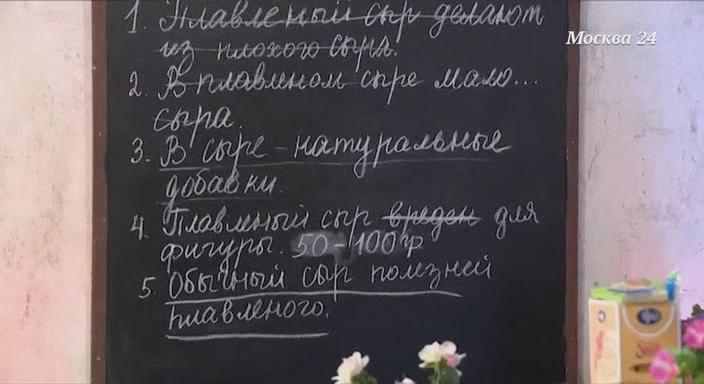 1. Плавленый сыр делают
из плохого сыра.
Москва 24
2. В плавленом сыре мало...
сыра.
3. В сыре - натуральные
добавки.
4. Плавленый сыр вреден для
фигуры. 50-100гр
5. Обычный сыр полезней
плавленого.